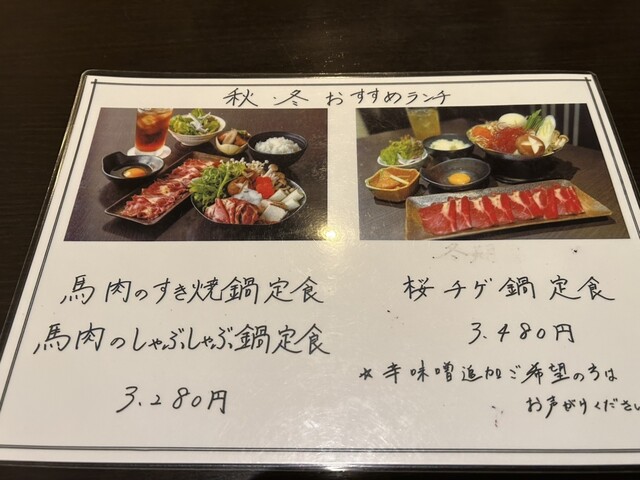 秋・冬 おすすめランチ
馬肉のすき焼鍋定食
馬肉のしゃぶしゃぶ鍋定食
3.280円
桜チゲ鍋定食
3.480円
☆辛味噌追加ご希望の方は
お声がけください